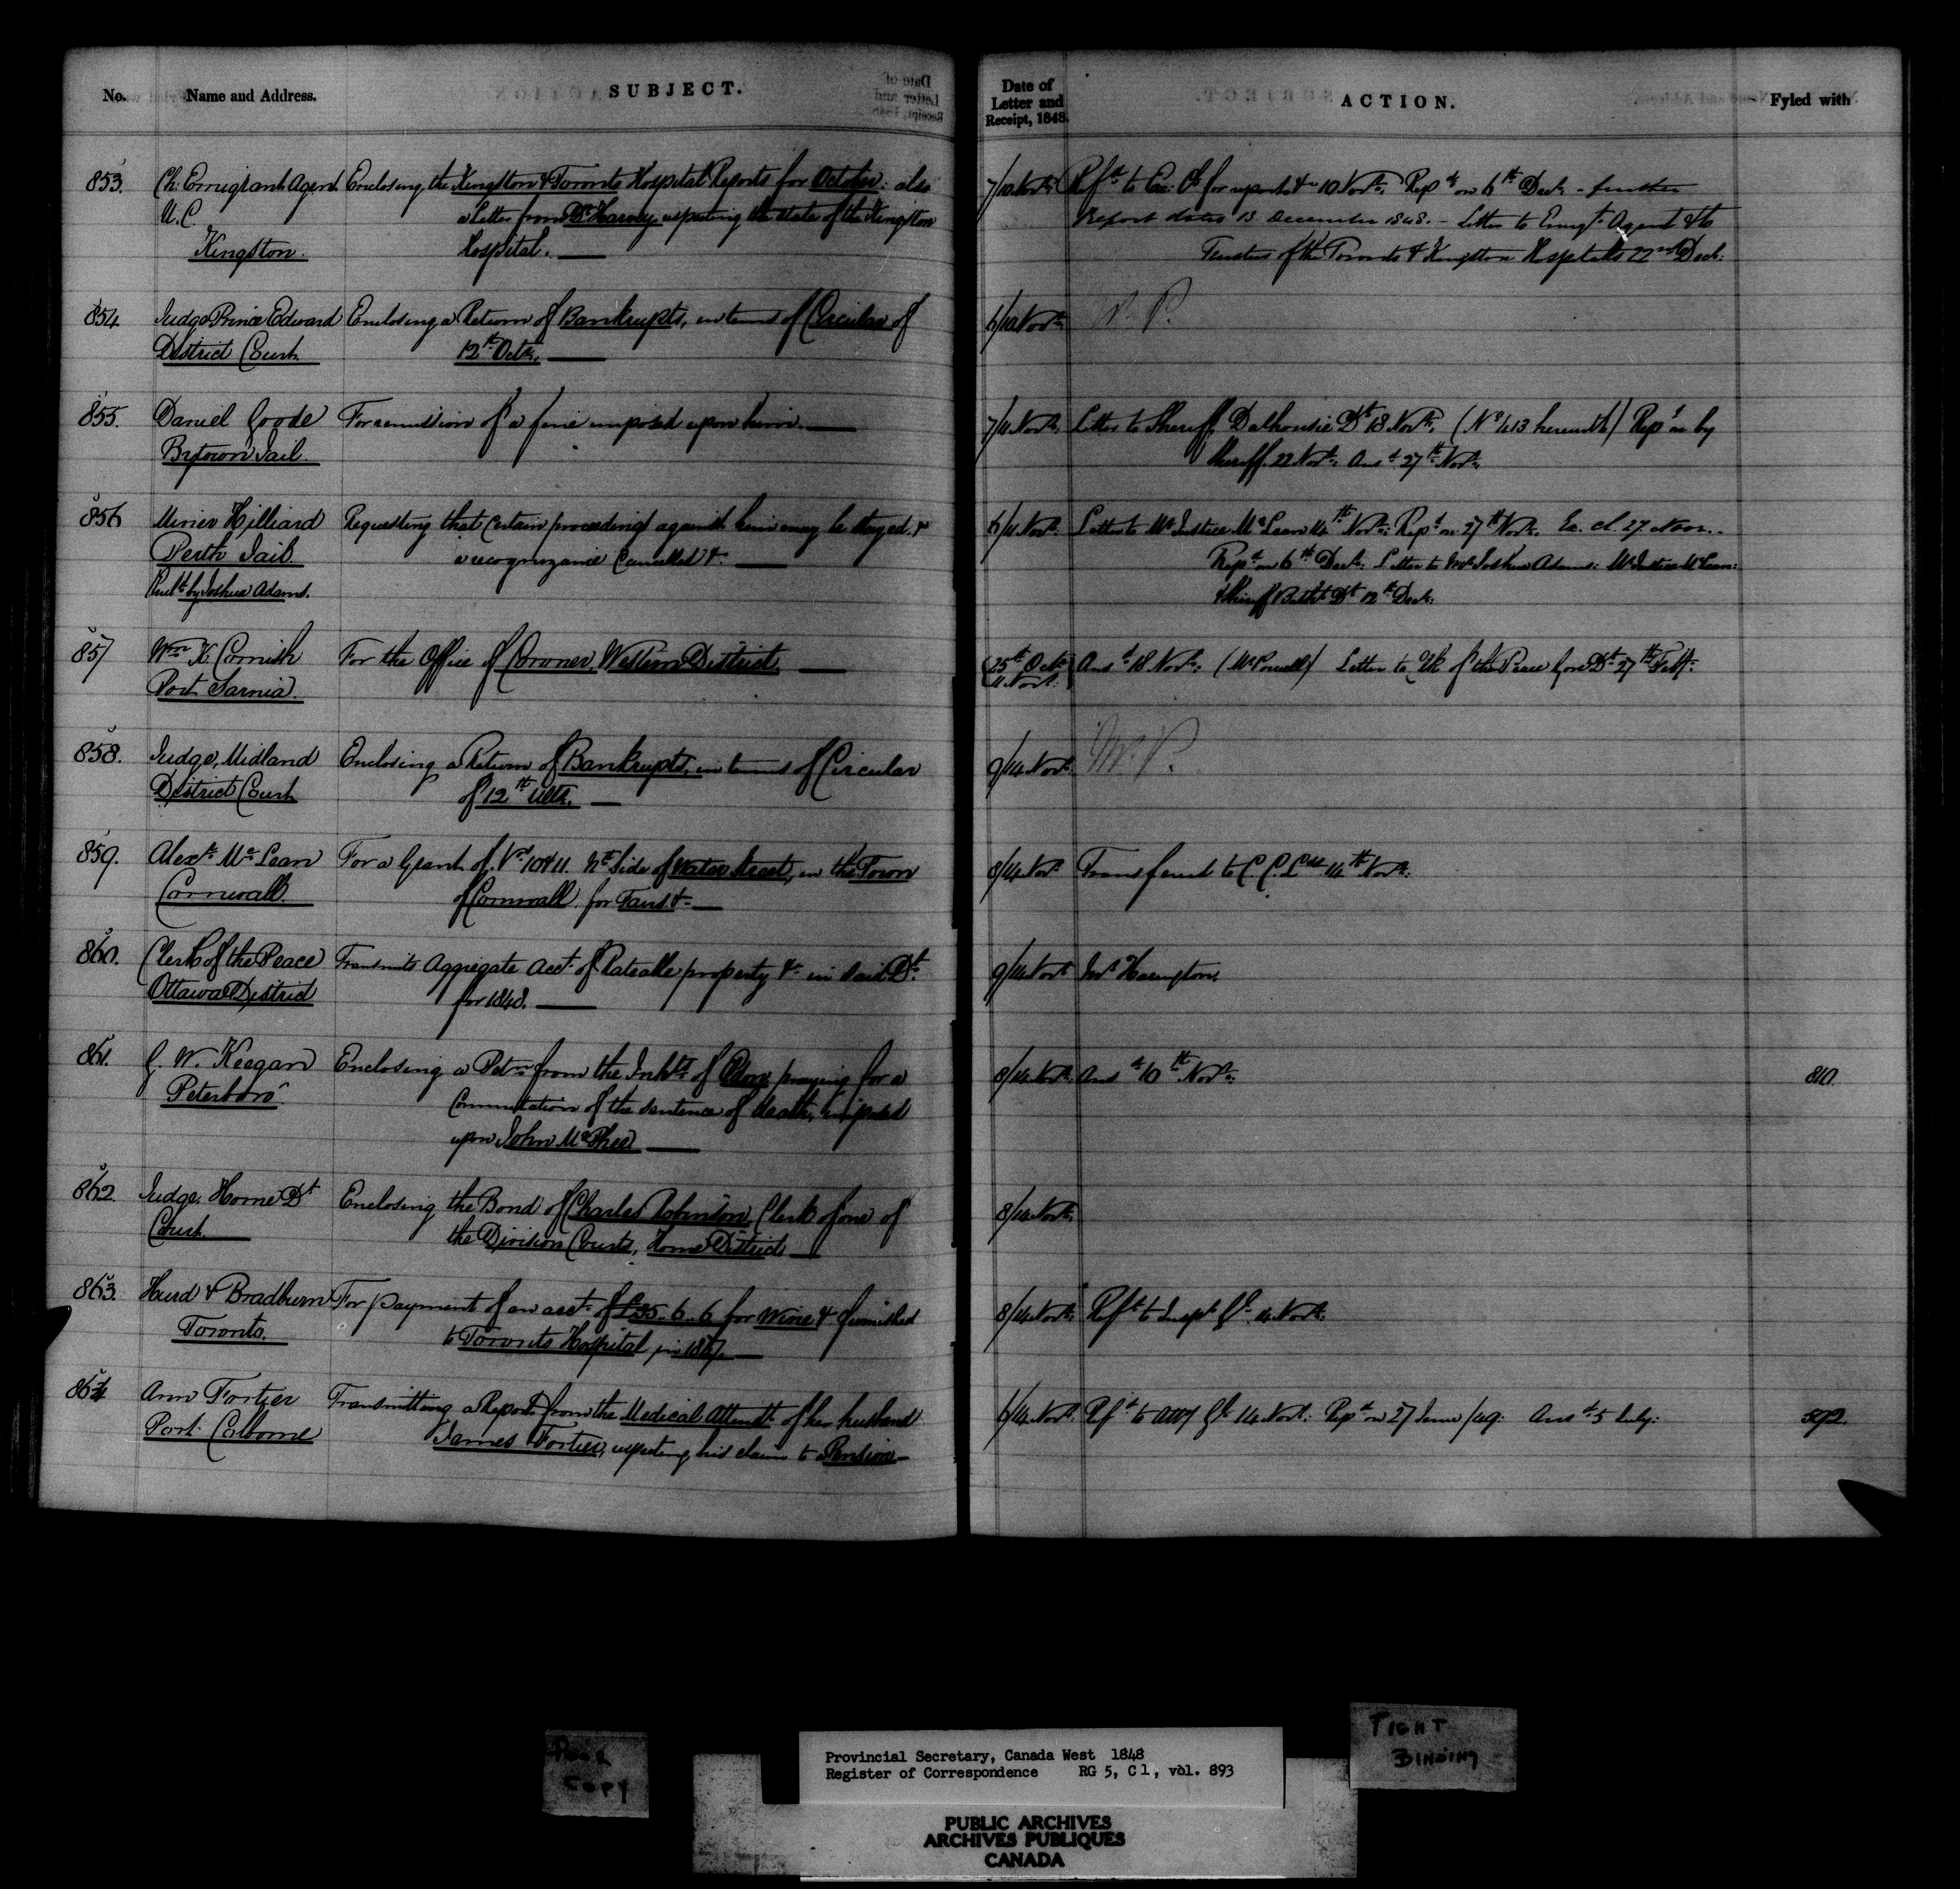 No. Name and Address. SUBJECT. Date of Letter and Receipt, 1848. ACTION. Fyled with
853. Ch: Emigrant Agent Enclosing the Kingston & Toronto Hospital Reports for October: also 7/10 Novr: Refd to Ex: Cl for report &c 10 Novr: Repd on 6th Decr - further
U.C. a letter from Dr Harvey respecting the state of the Kingston report dated 13 December 1848. - Letter to Emigt Agent & to
Kingston. Hospital. Trustees of the Toronto & Kingston Hospitals 22nd Decr:
854 Judge Prince Edward Enclosing a Return of Bankrupts, in terms of Circular of 6/10 Novr
District Court. 12th Octr.
855. Daniel Goode For remission of a fine imposed upon him. 7/11 Novr: Letter to Sheriff Dalhousie Dt 18 Novr: (No 1413 herewith) Repd on by
Bytown Jail. Sheriff 22 Novr: Ansd 27th Novr.
856 Minier Hilliard Requesting that certain proceedings against him may be stayed & 6/11 Novr: Letter to Mr Justice McLean 14th Novr: Repd on 27th Novr. Ex. Cl 27. Novr.
Perth Jail. a recognizance Cancelled &c. Repd on 6th Decr: Letter to Mr Joshua Adams: Mr Justice McLean:
by Joshua Adams. & Sheriff Bathst Dt 12th Decr:
857 Wm K. Cornish For the Office of Coroner, Western District 25th Octr Ansd 18 Novr: (Mr Powell) Letter to Clk of the Peace Gore Dt 27th
Port Sarnia. 11 Novr.
858. Judge, Midland Enclosing a Return of Bankrupts, in terms of Circular 9/14 Novr
District Court of 12th Ulto.
859. Alexr McLean For a Grant of Nos 10 & 11. Nth Side of Water Street, in the Town 8/14 Novr Transferred to C.C.L. 14th Novr.
Cornwall. of Cornwall for &c.
860. Clerk of the Peace Transmits Aggregate Acct of Rateable property &c in said Dt. 9/14 Novr Mr Harington.
Ottawa District for 1848.
861. G. W. Keegan Enclosing a Petn from the Inhts of praying for a 8/14 Novr. Ansd 10th Novr: 810.
Peterboro'. Commutation of the sentence of death, imposed
upon John McPhee
862 Judge, Home Dt Enclosing the Bond of Charles Robinson, Clerk of one of 8/14 Novr.
Court. the Division Courts, Home District
863. Hurd & Bradburn For payment of an acct. of £35..6..6 for Wine & furnished 8/14 Novr: Refd to Inspr Gl 14 Novr.
Toronto. to Toronto Hospital in 1847.
864 Ann Fortier Transmitting a Report from the Medical Attendt of her husband 6/14 Novr. Refd to Atty Gl 14 Novr: Repd on 27 June /49: Ansd 5 July: 592.
Port Colborne James Fortier, respecting his claim to a Pension
POOR
COPY
TIGHT
BINDING
Provincial Secretary, Canada West 1848
Register of Correspondence RG 5, C 1, vol. 893
PUBLIC ARCHIVES
ARCHIVES PUBLIQUES
CANADA